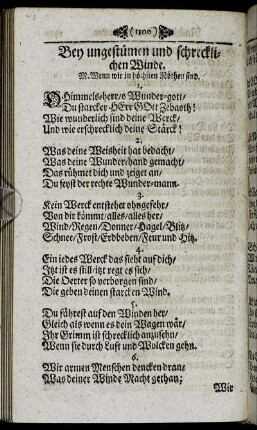 (1300)
Bey ungestümen und schreckli-
chen Winde.
M. Wenn wir in höchsten Nöthen sind.
1.
O Himmels-herr/o Wunder-gott/
Du starcker HErr GOtt Zebaoth!
Wie wunderlich sind deine Werck/
Und wie erschrecklich deine Stärck!
2.
Was deine Weisheit hat bedacht/
Was deine Wunder-hand gemacht/
Das rühmt dich und zeiget an/
Du seyst der rechte Wunder-mann.
3.
Kein Werck entstehet ohngefehr/
Von dir kömmt/alles/alles her/
Wind/Regen/Donner/Hagel/Blitz/
Schnee/Frost/Erdbeben/Feur und Hitz.
4.
Ein jedes Werck das sieht auf dich/
Itzt ist es still/itzt regt es sich/
Die Oerter so verborgen sind/
Die geben deinen starcken Wind.
5.
Du fährest auf den Winden her/
Gleich als wenn es dein Wagen wär/
Ihr Grimm ist schrecklich anzusehn/
Wenn sie durch Luft und Wolcken gehn.
6.
Wir armen Menschen dencken dran/
Was deiner Winde Macht gethan;
Wir